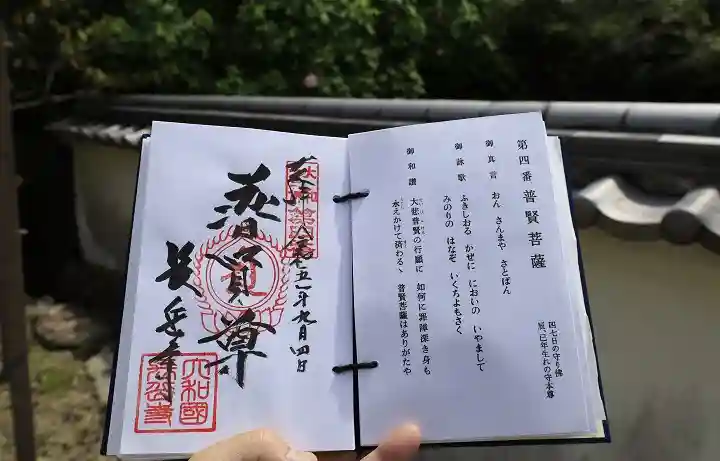 第四番 普賢菩薩
四七日の守り佛
辰、巳年生れの守本尊
御真言 おん さんまや さとばん
御詠歌 ふきしおる かぜに においの いやまして
みのりの はなぞ いくちよもさく
御和讃 大慈普賢の行願に 如何に罪障深き身も
永えかけて済わるゝ 普賢菩薩はありがたや
奉拝 令和五年九月四日
普賢尊
長岳寺
大和國